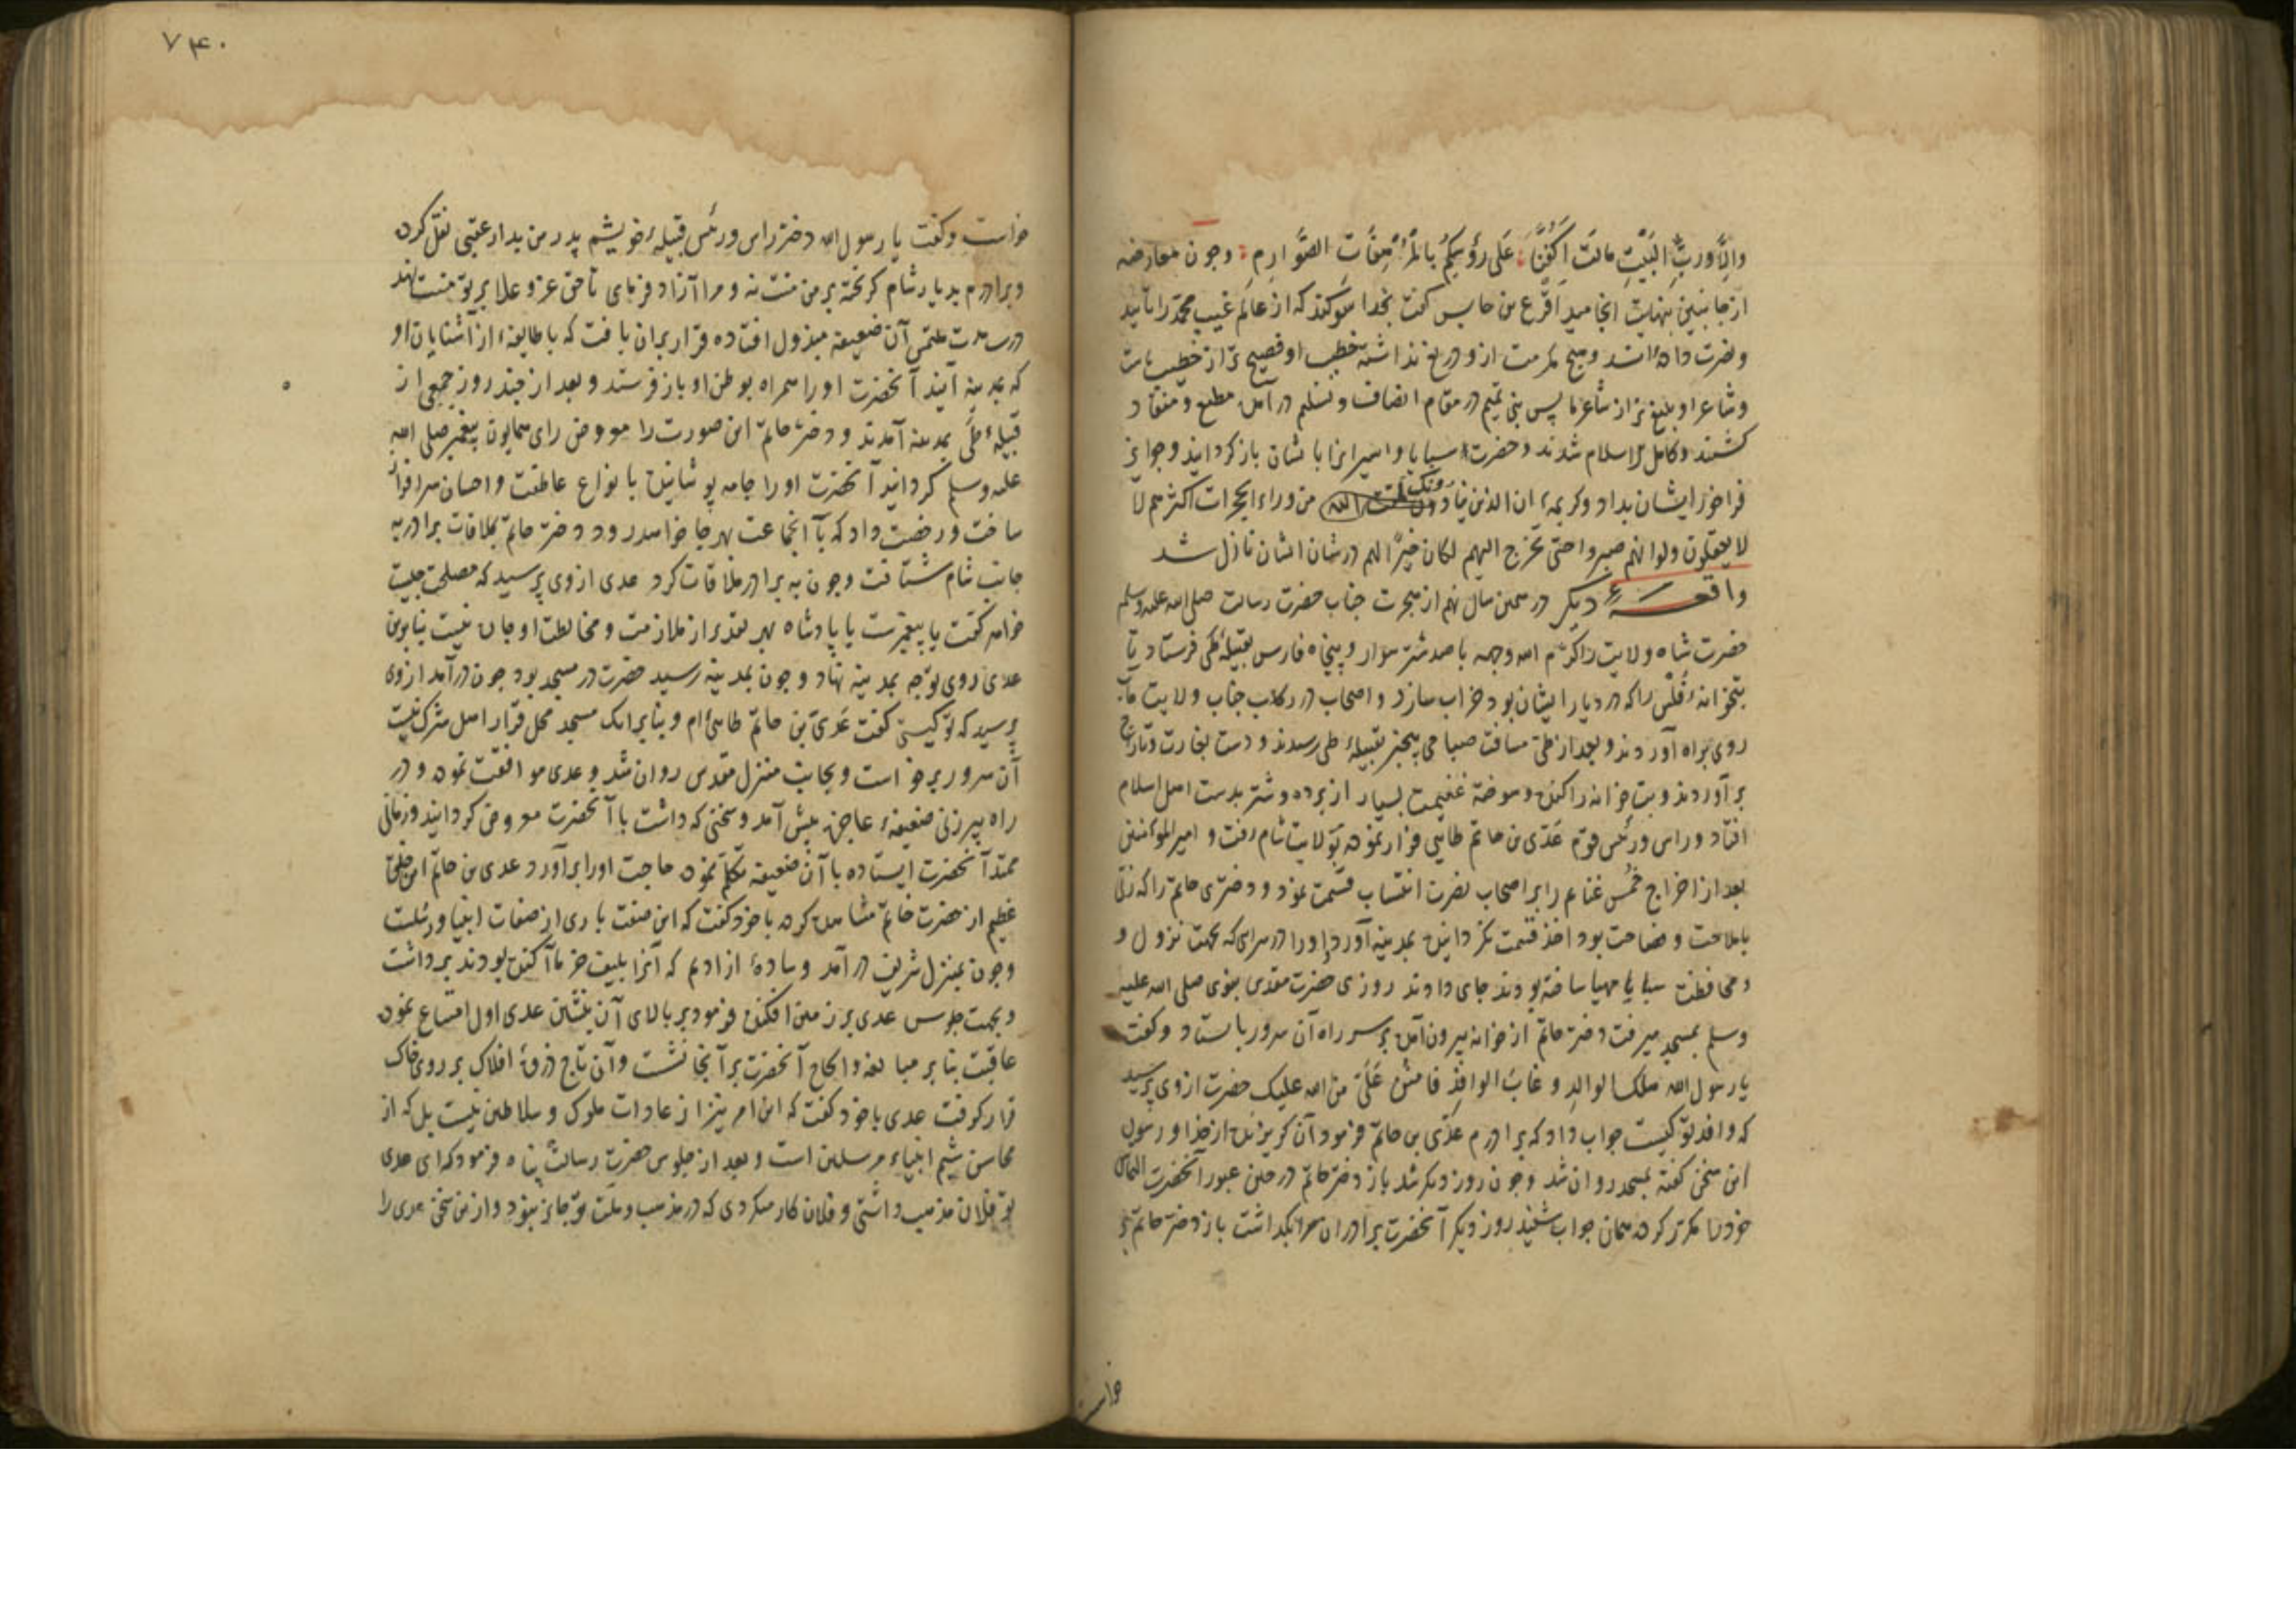 والّا وربّ البیت مالت اکفّنا علی رؤسکم بالمرهفات الصوارم وچون معارضه
از جانبین بنهایت انجامید اقرع بن حابس گفت بخدا سوکند که از عالم غیب محمد را تایید
ونصرت داده‌اند وهیچ مکرمت ازو دریغ نداشته خطیب او فصیح تر از خطیب ماست
وشاعر او بلیغ تر از شاعر ما پس بنی تمیم در مقام انصاف وتسلیم در آمده مطیع ومنقاد
کشتند وکامل الاسلام شدند وحضرت سبایا واسیرانرا بایشان باز کردانید وجوایز
فراخور ایشان بداد وکریمهٔ ان الذین ینادونک من وراء الحجرات اکثرهم لا
لا یعقلون ولو انهم صبروا حتی تخرج الیهم لکان خیرًا لهم در شان ایشان نازل شد
واقعهٔ دیکر در همین سال نهم از هجرت جناب حضرت رسالت صلی الله علیه وسلم
حضرت شاه ولایت را کرّم الله وجهه با صد شتر سوار وپنجاه فارس بقبیلهٔ طی فرستاد تا
بتخانهٔ فُلس را که در دیار ایشان بود خراب سازد واصحاب در رکاب جناب ولایت مآب
روی براه آوردند وبعد از طیّ مسافت صباحی بیخبر بقبیلهٔ طی رسیدند ودست بغارت وتاراج
بر آوردند وبت خانه را کنده وسوخته غنیمت بسیار از برده وشتر بدست اهل اسلام
افتاد وراس ورئیس قوم عَدی بن حاتم طایی فرار نموده بولایت شام رفت وامیر المؤمنین
بعد از اخراج خُمس غنایم را بر اصحاب نصرت انتساب قسمت نمود ودختری حاتم را که زنی
با ملاحت وفصاحت بود اخذ قسمت نکردانیده بمدینه آورد واورا در سرای که بجهت نزول و
ومحافظت سبایا مهیا ساخته بودند جای دادند روزی حضرت مقدس نبوی صلی الله علیه
وسلم بمسجد میرفت دختر حاتم از خانه بیرون آمده بر سر راه آن سرور بایستاد وکفت
یا رسول الله هلک الوالد وغاب الوافد فامنن عَلَیّ منّ الله علیک حضرت از وی پرسید
که وافد تو کیست جواب داد که برادرم عدّی بن حاتم فرمود آن کریزنده از خدا ورسول
این سخن کفته بمسجد روان شد وچون روز دیکر شد باز دختر حاتم در حین عبور آنحضرت التماس
خود را مکرّر کرده همان جواب شنید روز دیکر آنحضرت برادران سرا بکذاشت باز دختر حاتم بر
خواست
۷۴۰
خواست وکفت یا رسول الله دختر راس ورئیس قبیلهٔ خویشم پدر من بدار عقبی نقل کرده
وبرادرم بدیار شام کریخته بر من منت نه ومرا آزاد فرمای تا حق عز وعلا بر تو منت نهد
درین مدت ملتمس آن ضعیفه مبذول افتاده قرار بران یافت که با طایفهٔ از آشنایان او
که بمدینه آیند آنحضرت اورا همراه بوطن او باز فرستد وبعد از چند روز جمعی از
قبیلهٔ طی بمدینه آمدند ودختر حاتم این صورت را معروض رای همایون پیغمبر صلی الله
علیه وسلم کردانید آنحضرت اورا جامه پوشانیده بانواع عاطفت واحسان سرافراز
ساخت ورخصت داد که با آنجماعت بهرجا خواهد رود دختر حاتم بملاقات برادر به
جانب شام شتافت وچون به برادر ملاقات کرد عدی از وی پرسید که مصلحت چیست
خواهر کفت یا پیغمبرست یا پادشاه بهر تقدیر از ملازمت ومخالطت او چاره نیست بنابرین
عدی روی توجه بمدینه نهاد وچون بمدینه رسید حضرت در مسجد بود چون در آمد از وی
پرسید که تو کیستی کفت عَدی بن حاتم طایی ام وبنابر انک مسجد محل قرار اهل شرک نیست
آن سرور برخاست وبجانب منزل مقدس روان شد وعدی موافقت نموده ودر
راه پیرزنی ضعیفهٔ عاجزه پیش آمد وسخنی که داشت با آنحضرت معروض کردانید وزمانی
ممتد آنحضرت ایستاده با آن ضعیفه تکلّم نموده حاجت اورا برآورد عدی بن حاتم این خلق
عظیم از حضرت خاتم مشاهده کرده با خود کفت که این صفت باری از صفات انبیا ورسلست
وچون بمنزل شریف در آمد وسادهٔ از ادیم که آنرا بلیف خرما آکنده بودند برداشت
وبجهت جلوس عدی بر زمین افکنده فرمود بر بالای آن بنشین عدی اول امتناع نموده
عاقبت بنابر مبالغه والحاح آنحضرت بر آنجا نشست وآن تاج ذروهٔ افلاک بر روی خاک
قرار کرفت عدی با خود کفت که این امر نیز از عادات ملوک وسلاطین نیست بل که از
محاسن شیم انبیاء مرسلین است وبعد از جلوس حضرت رسالت پناه فرمود که ای عدی
تو فلان مذهب داشتی وفلان کار میکردی که در مذهب وملّت تو جایز نبود وازین سخن عدی را